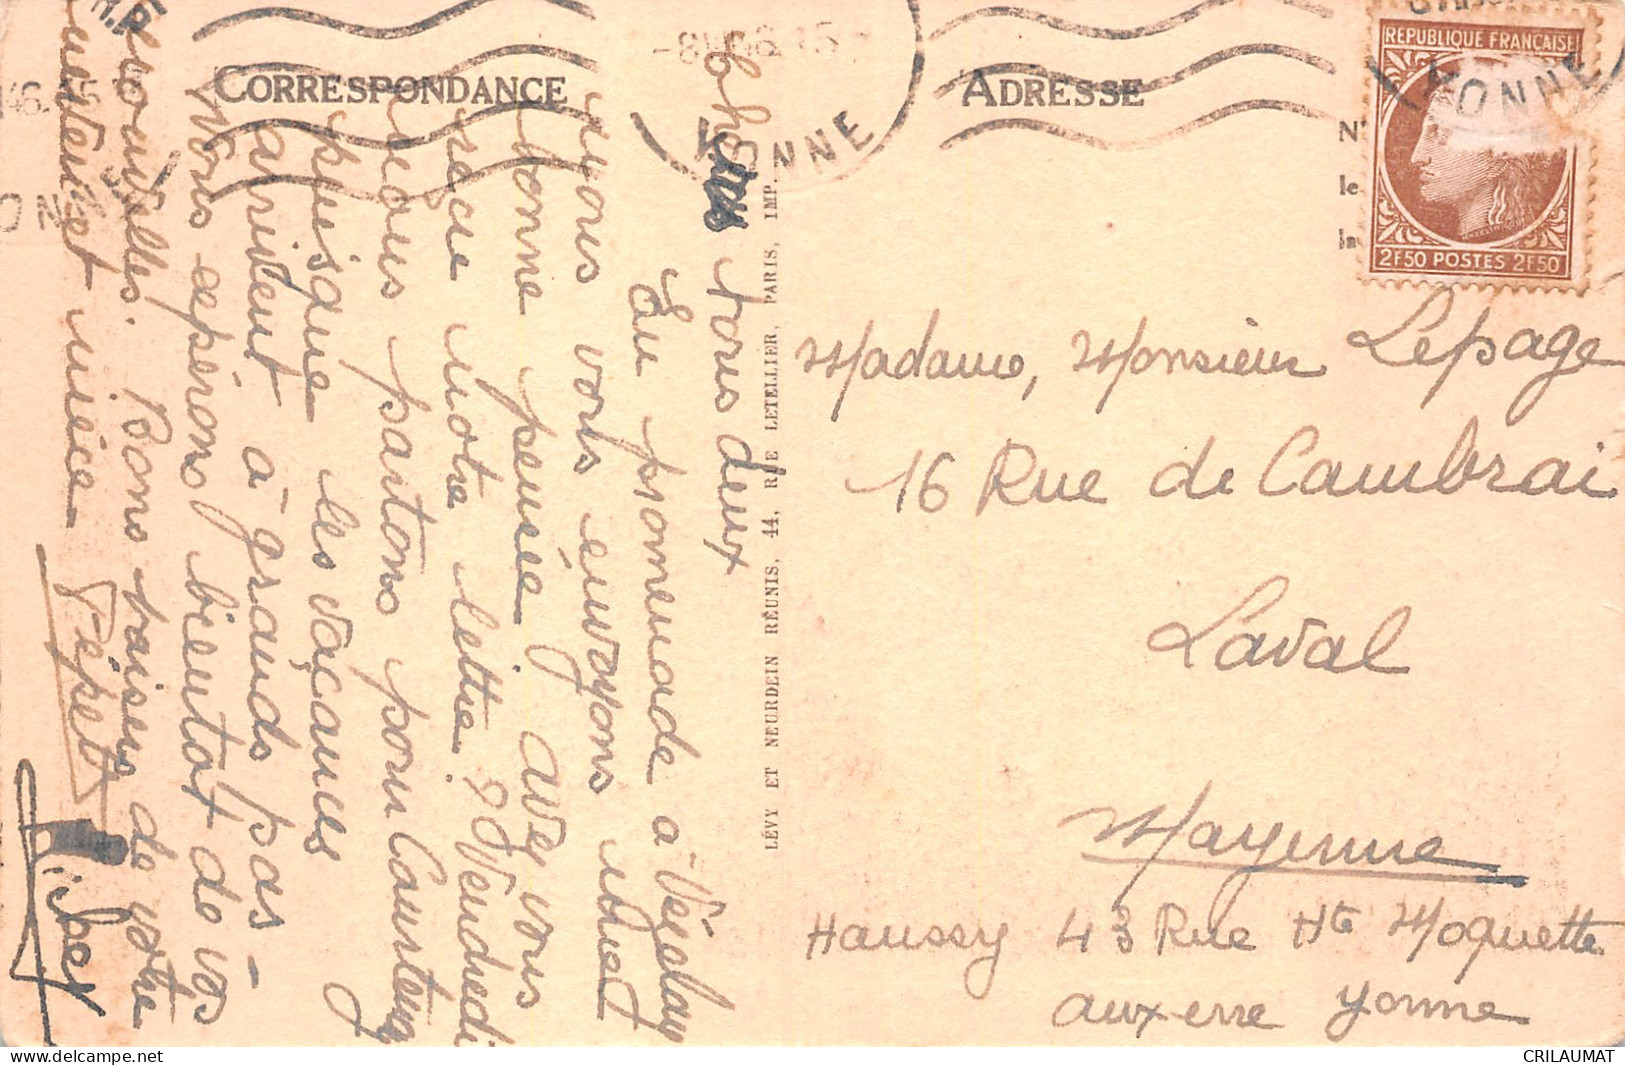 CORRESPONDANCE
ADRESSE
REPUBLIQUE FRANÇAISE
2F50 POSTES 2F50
YONNE
YONNE
N°
le
la
Chers tous deux
En promenade à Vézelay
nous vous envoyons une
bonne pensée avez vous
recu notre lettre? Vendredi
nous partons pour Cauterey
puisque les vaçances
arrivent à grands pas-
Nous espérons bientot de vos
nouvelles. Bons baisers de votre
neveu et nièce
Pépet
LÉVY ET NEURDEIN RÉUNIS, 44, RUE LETELLIER, PARIS, IMP.
Madame, Monsieur Lepage
16 Rue de Cambrai
Laval
Mayenne
Haussy 43 Rue Hte Moquette
auxerre yonne
CRILAUMAT